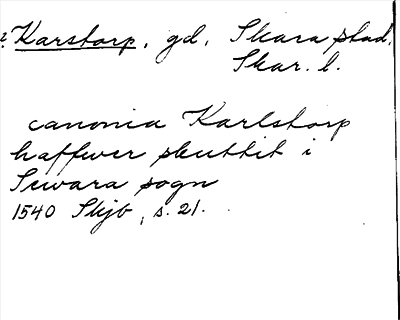 ? Karstorp, gd, Skara stad,
Skar. l.
canonia Karlstorp
haffwer skuttit i
Sewara sogn
1540 Skjb, s. 21.